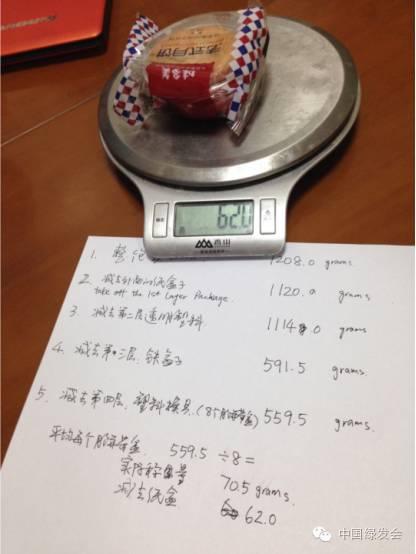 老式月饼
62.0
香山
1. 整
1208.0 grams
2. 减去外面的纸盒子
take off the 1st Layer Package.
1120.0 grams
3. 减去第二层透明塑料.
1114.0 grams
4. 减去第三层, 铁盒子
591.5 grams.
5. 减去第四层, 塑料模具, (8个
559.5 grams.
平均每个
559.5 ÷8=
实际称量
70.5 grams.
减去纸盒
62.0
中国绿发会